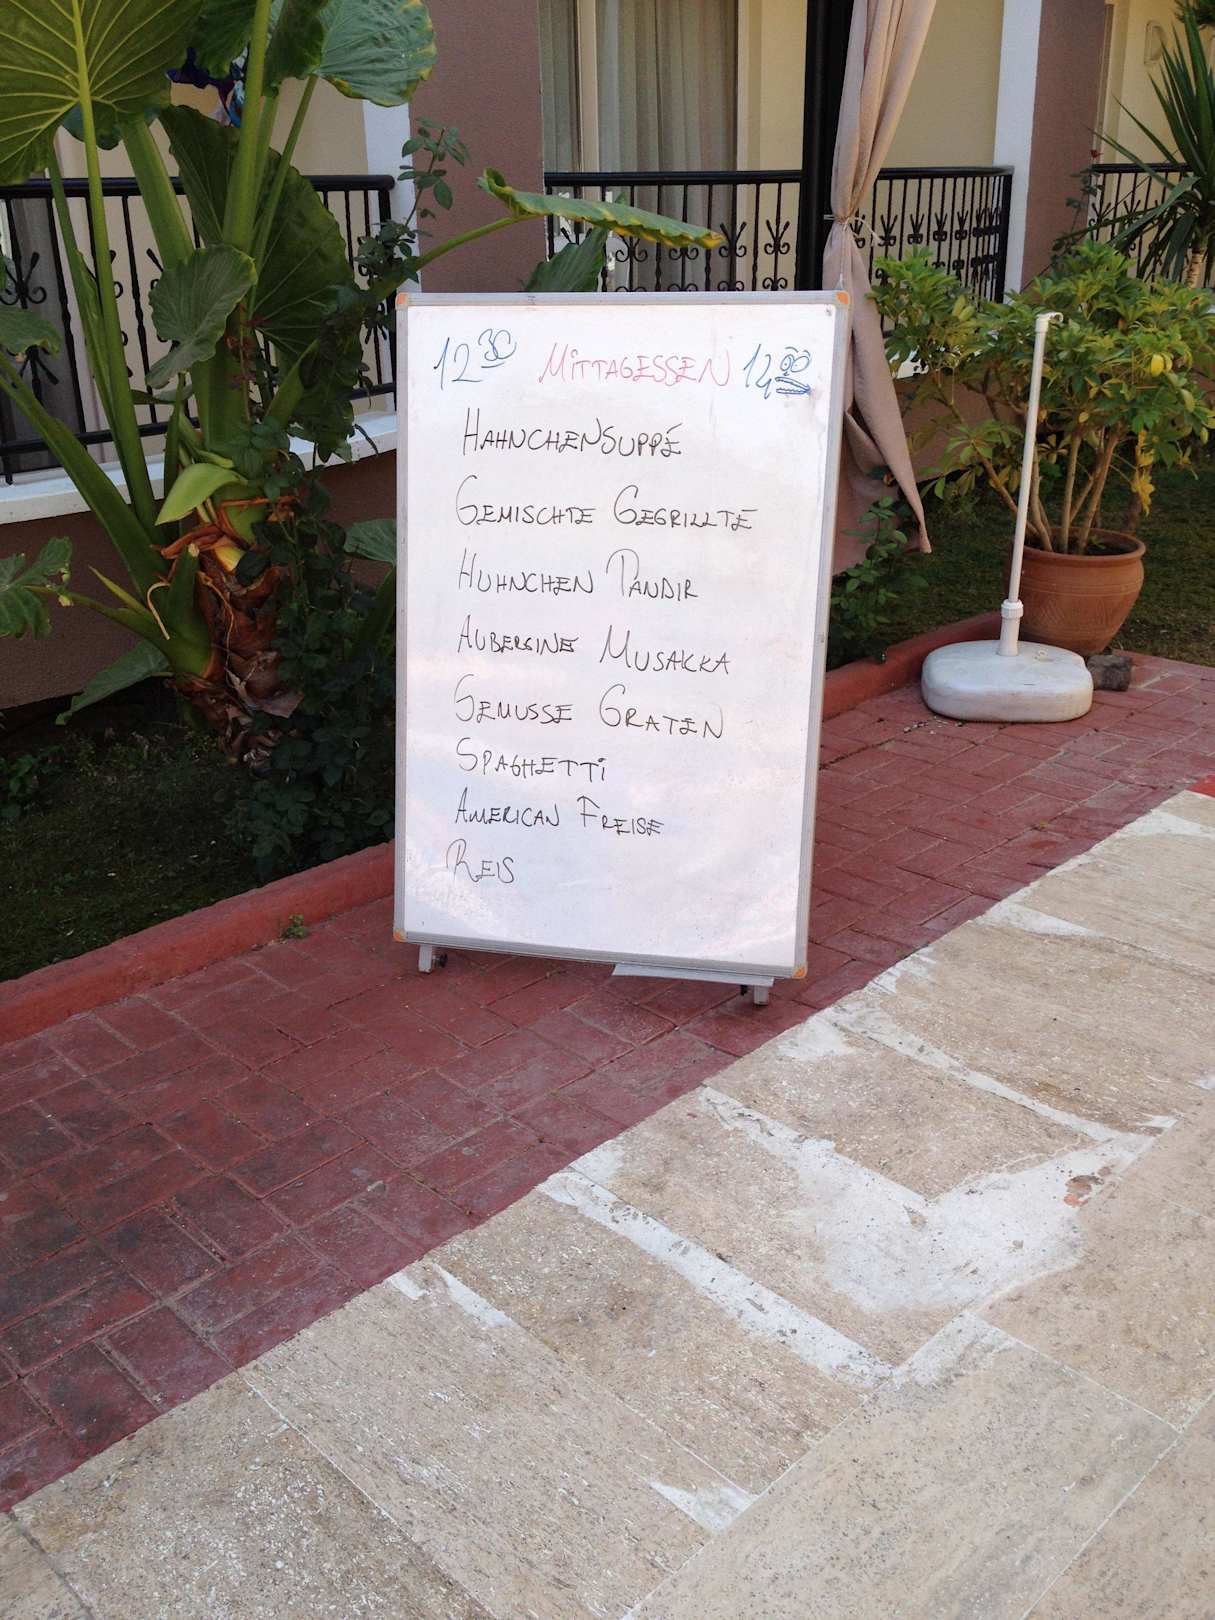 12 30 MITTAGESSEN 14 00
HAHNCHENSUPPÉ
GEMISCHTE GEGRILLTE
HUHNCHEN TANDIR
AUBERGINE MUSAKKA
GEMUSSE GRATEN
SPAGHETTI
AMERICAN FREISE
REIS